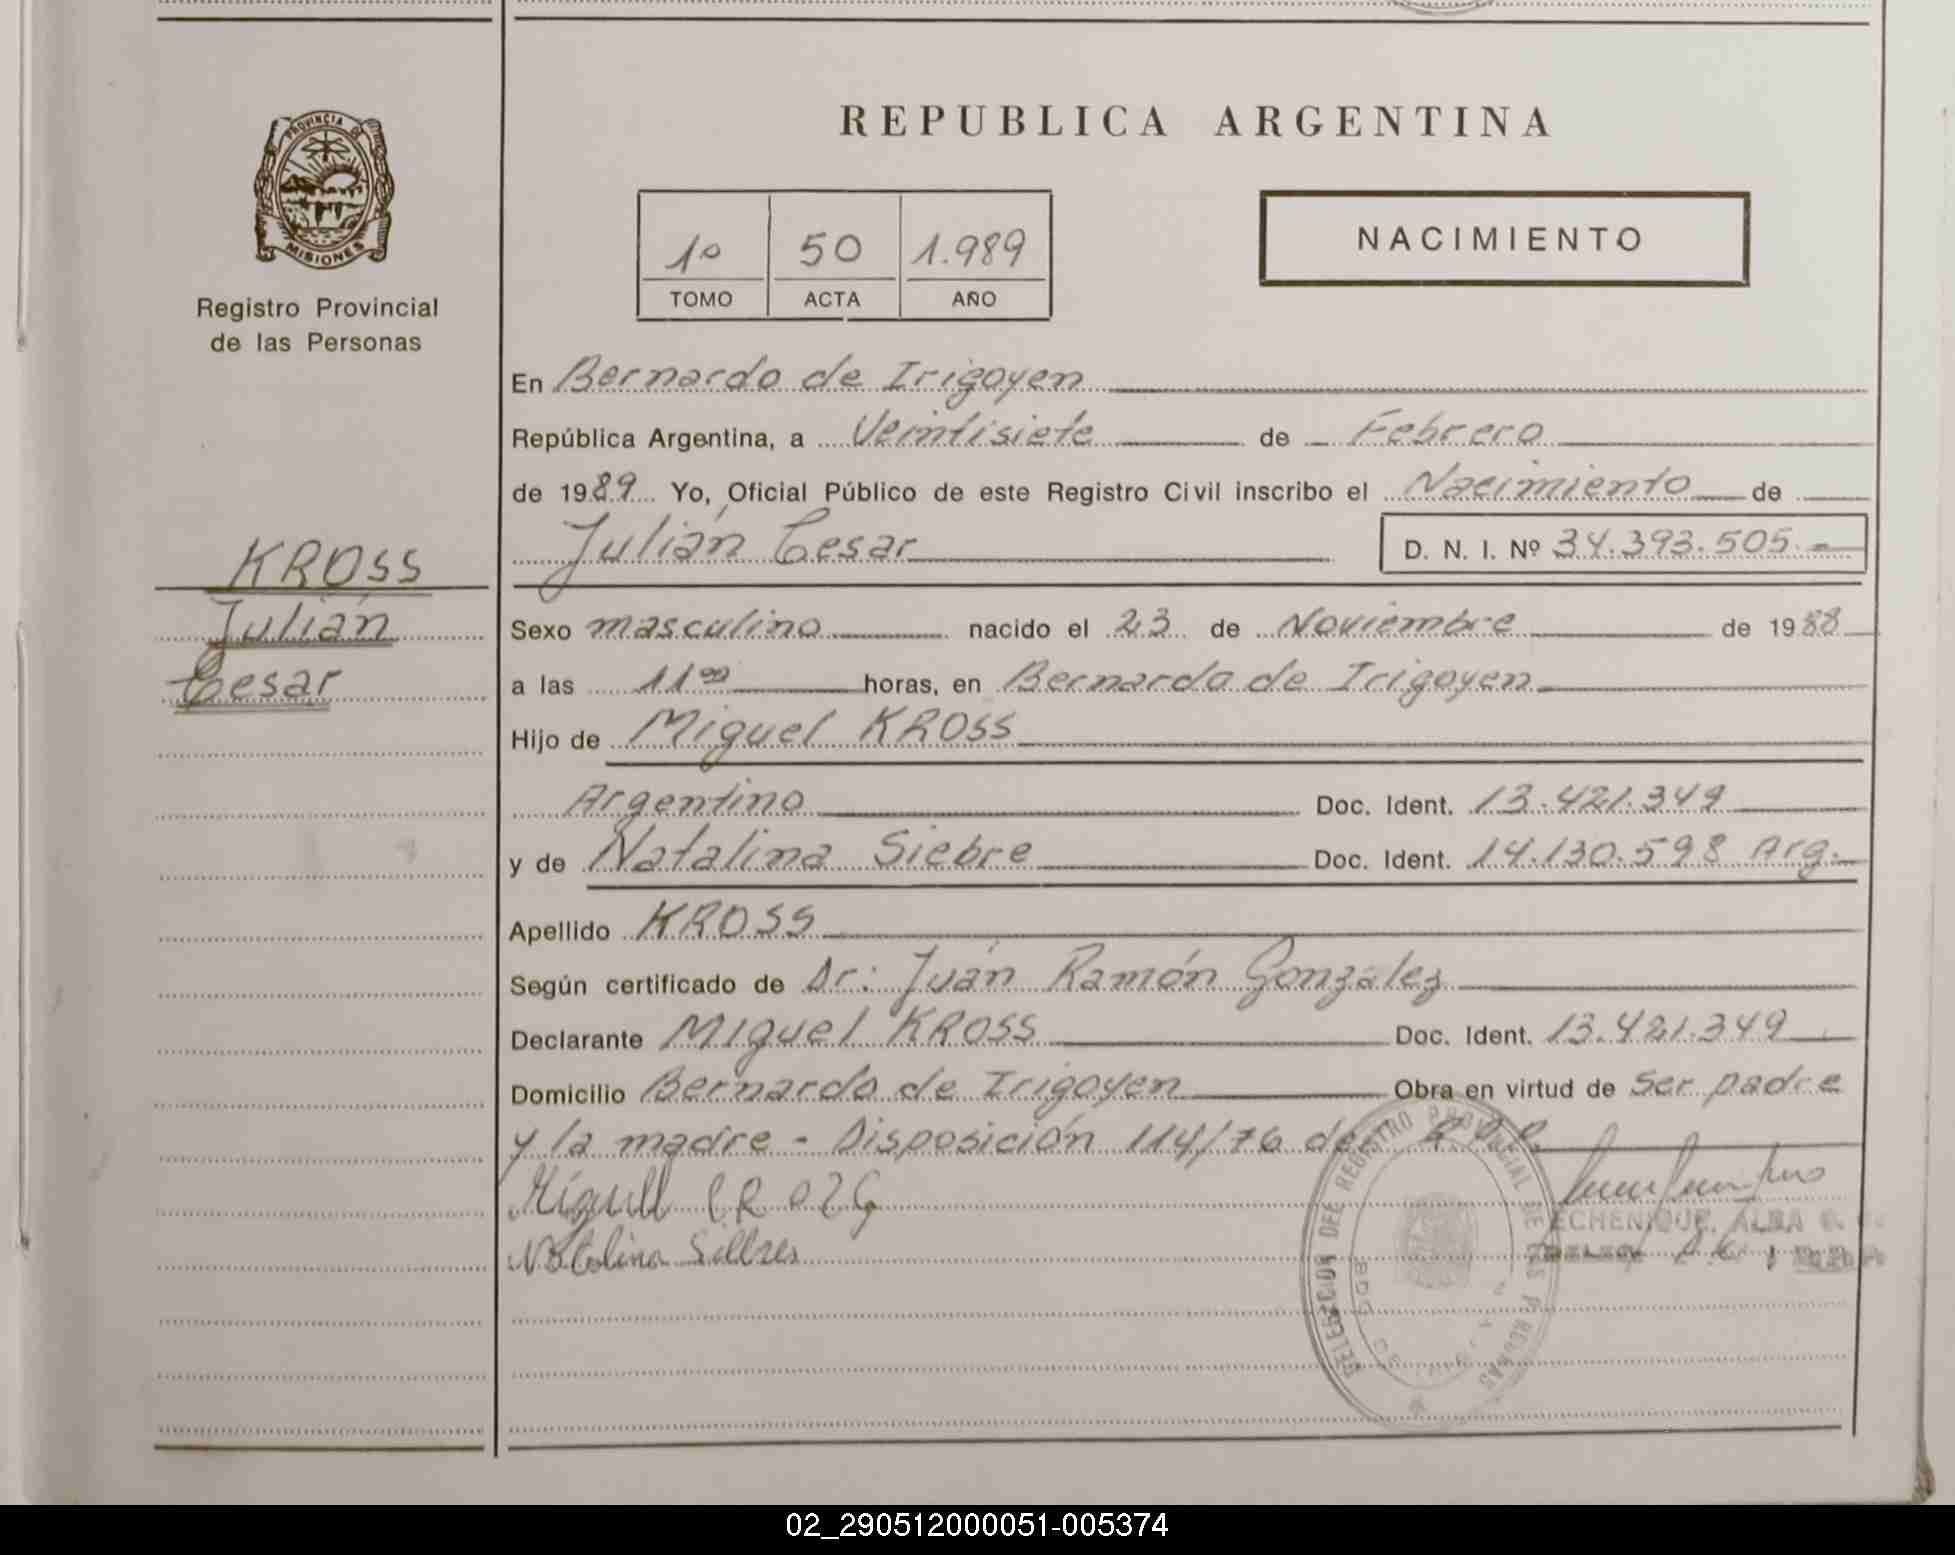 PROVINCIA DE
MISIONES
Registro Provincial
de las Personas
KROSS
Julián
Cesar
REPUBLICA ARGENTINA
1º 50 1.989
TOMO ACTA AÑO
NACIMIENTO
En Bernardo de Irigoyen
República Argentina, a Veintisiete de Febrero
de 1989 Yo, Oficial Público de este Registro Civil inscribo el Nacimiento de
Julián Cesar D. N. I. Nº 34.393.505.-
Sexo masculino nacido el 23 de Noviembre de 1988
a las 11⁰⁰ horas, en Bernardo de Irigoyen
Hijo de Miguel KROSS
Argentino Doc. Ident. 13.421.349
y de Natalina Siebre Doc. Ident. 14.130.598 Arg.
Apellido KROSS
Según certificado de Dr: Juán Ramón González
Declarante Miguel KROSS Doc. Ident. 13.421.349
Domicilio Bernardo de Irigoyen Obra en virtud de ser padre
y la madre - Disposición 114/76 del R.P.P.
Miguell
Natalina
ECHENIQUE, ALBA
REGISTRO PROVINCIAL DE LAS P
02_290512000051-005374